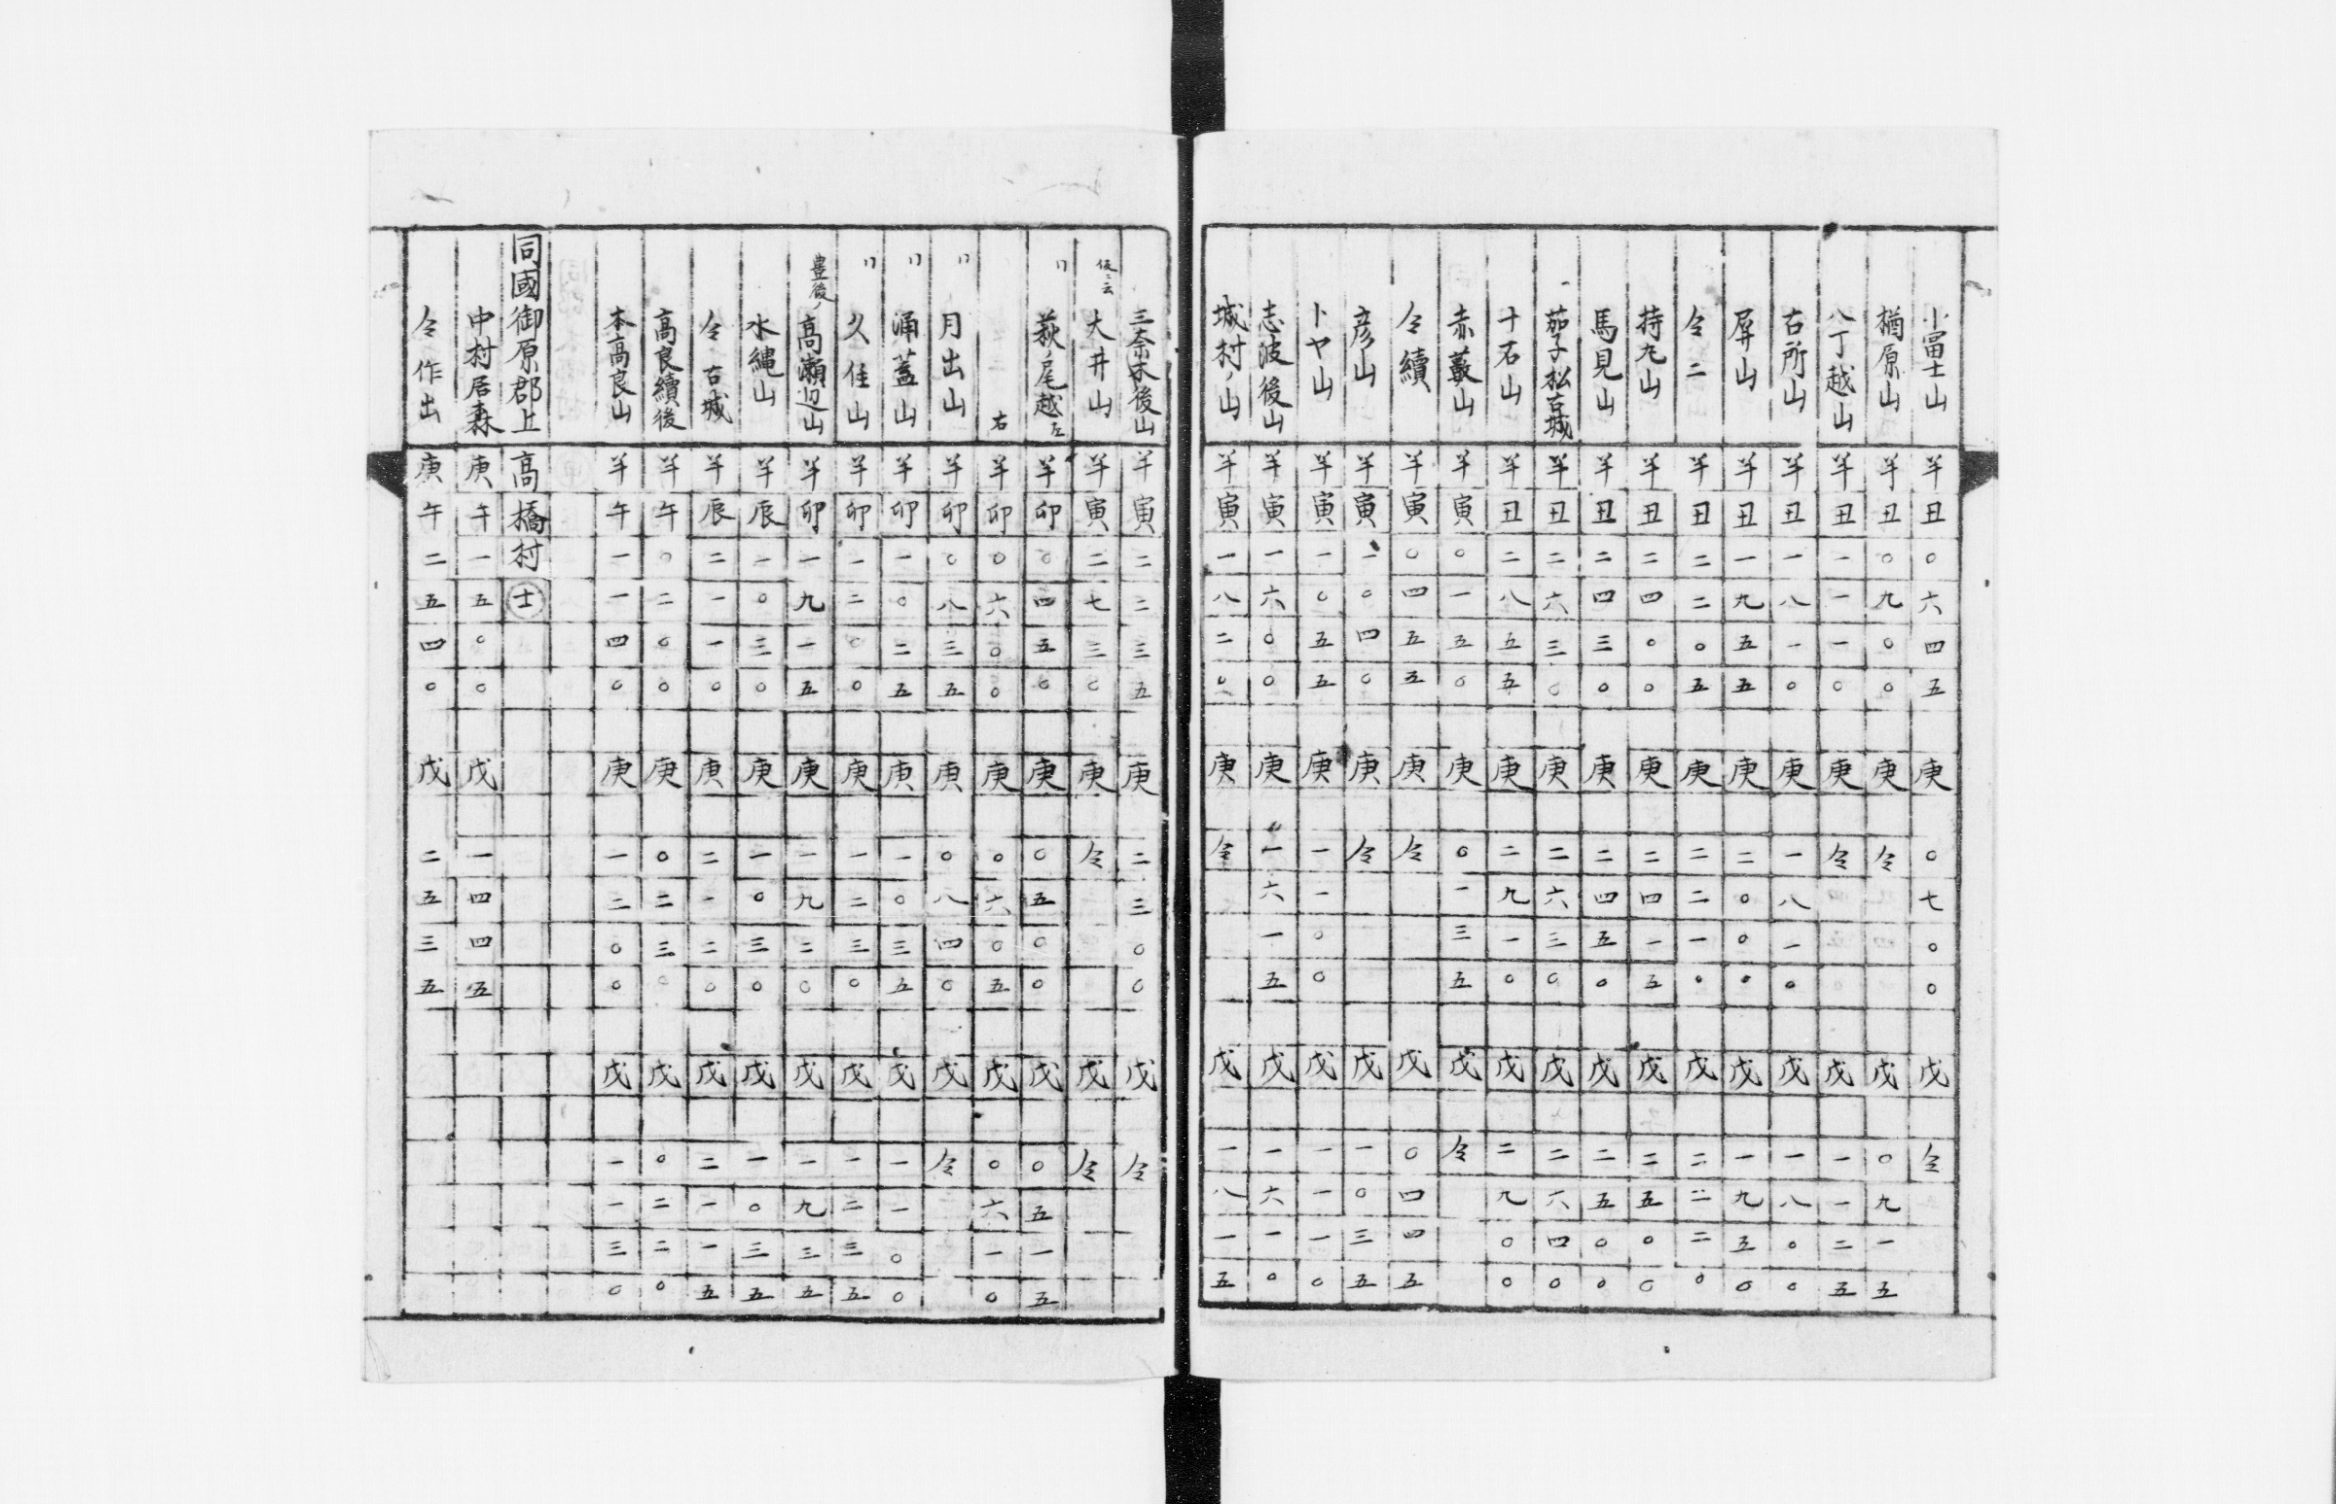 小冨士山 羊丑〇六四五 庚 〇七〇〇 戊 仝
楢原山 羊丑〇九〇〇 庚 仝 戊 〇九一五
八丁越山 羊丑一一一〇 庚 仝 戊 一一二五
古所山 羊丑一八一〇 庚 一八一〇 戊 一八〇〇
屏山 羊丑一九五五 庚 二〇〇〇 戊 一九五〇
仝二 羊丑二二〇五 庚 二二一〇 戊 二二二〇
持丸山 羊丑二四〇〇 庚 二四一五 戊 二五〇〇
馬見山 羊丑二四三〇 庚 二四五〇 戊 二五〇〇
茄子松古城 羊丑二六三〇 庚 二六三〇 戊 二六四〇
十石山 羊丑二八五五 庚 二九一〇 戊 二九〇〇
赤藪山 羊寅〇一五〇 庚 〇一三五 戊 仝
仝續 羊寅〇四五五 庚 仝 戊 〇四四五
彦山 羊寅一〇四〇 庚 仝 戊 一〇三五
トヤ山 羊寅一〇五五 庚 一一〇〇 戊 一一一〇
志波後山 羊寅一六〇〇 庚 一六一五 戊 一六一〇
城村ノ山 羊寅一八二〇 庚 仝 戊 一八一五
三奈木後山 羊寅二二三五 庚 二三〇〇 戊 仝
仮ニ云 大井山 羊寅二七三〇 庚 仝 戊 仝
〃 荻ノ尾越左 羊卯〇四五〇 庚 〇五〇〇 戊 〇五一五
右 羊卯〇六〇〇 庚 〇六〇五 戊 〇六一〇
〃 月出山 羊卯〇八三五 庚 〇八四〇 戊 仝
〃 涌蓋山 羊卯一〇二五 庚 一〇三五 戊 一一〇〇
〃 久住山 羊卯一二〇〇 庚 一二三〇 戊 一二三五
豊後ノ 高瀬辺山 羊卯一九一五 庚 一九二〇 戊 一九三五
水縄山 羊辰一〇三〇 庚 一〇三〇 戊 一〇三五
仝古城 羊辰二一一〇 庚 二一二〇 戊 二一一五
高良續後 羊午〇二〇〇 庚 〇二三〇 戊 〇二二〇
本高良山 羊午一一四〇 庚 一二〇〇 戊 一一三〇
同國御原郡上高橋村 士
中村居森 庚午一五〇〇 戊 一四四五
仝作出 庚午二五四〇 戊 二五三五